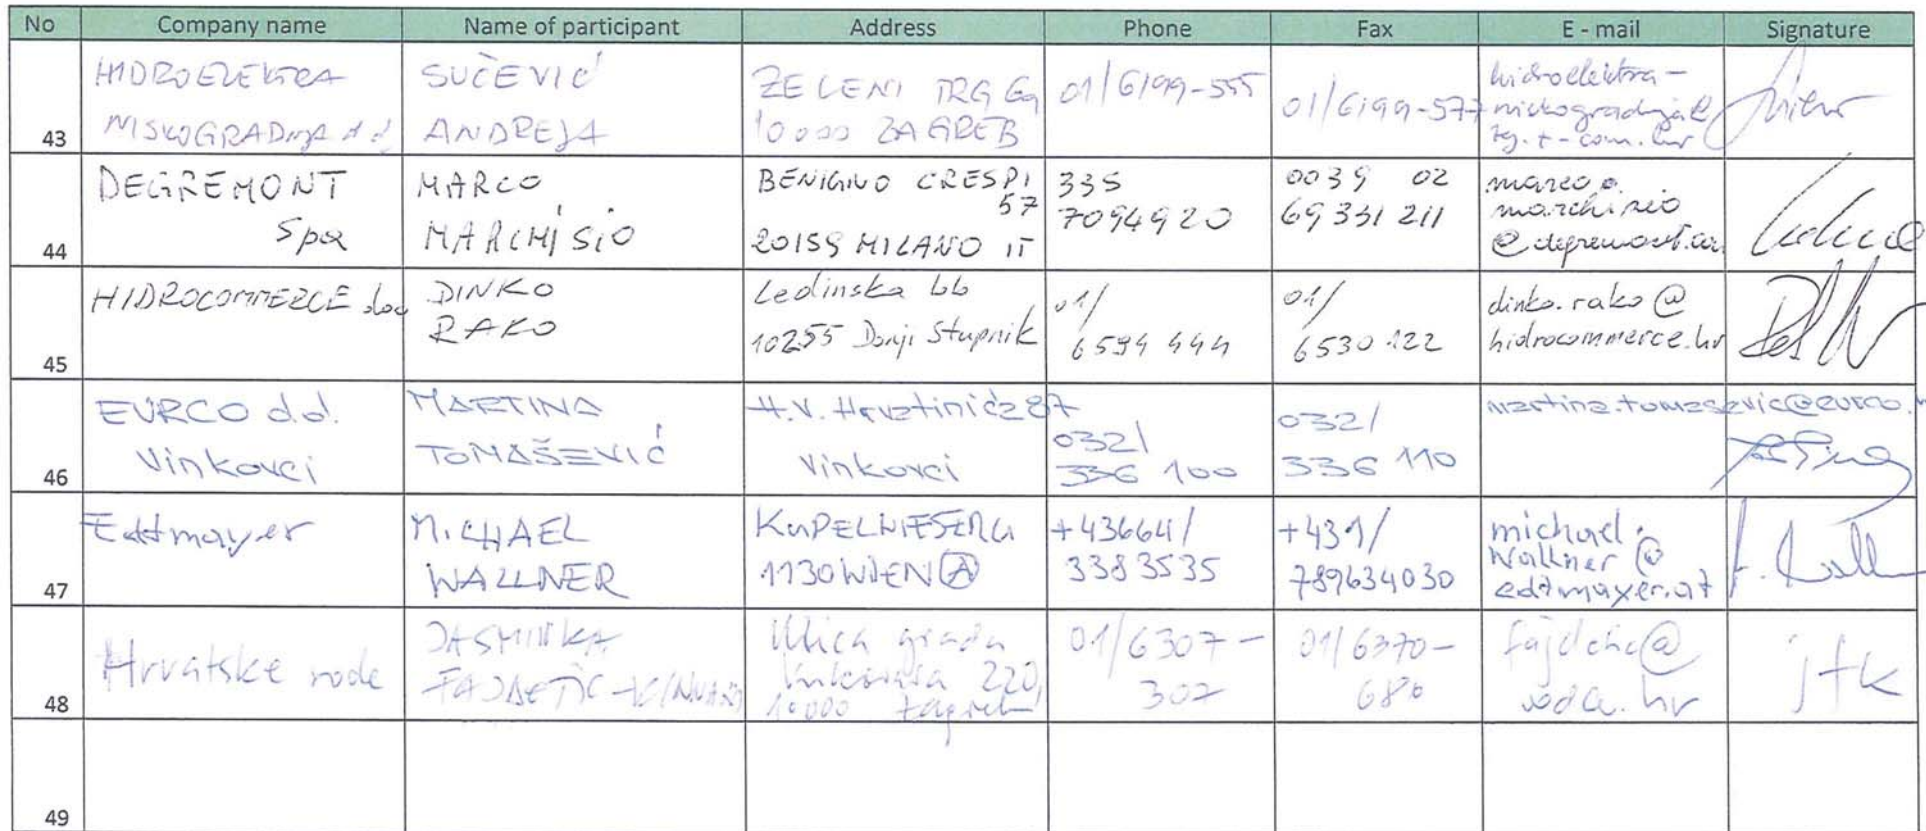 No Company name Name of participant Address Phone Fax E - mail Signature
43 HIDROELEKTRA NISKOGRADNJA d.d. SUČEVIĆ ANDREJA ZELENI TRG 6a 10000 ZAGREB 01/6199-555 01/6199-577 hidroelektra-niskogradnja@zg.t-com.hr
44 DEGREMONT Spa MARCO MARCHISIO BENIGNO CRESPI 57 20159 MILANO IT 335 7094920 0039 02 69331 211 marco.marchisio@degremont.com
45 HIDROCOMMERCE doo DINKO RAKO Ledinska bb 10255 Donji Stupnik 01/6594 444 01/6530 122 dinko.rako@hidrocommerce.hr
46 EURCO d.d. Vinkovci MARTINA TOMAŠEVIĆ H.V. Hrvatinića 87 Vinkovci 032/336 100 032/336 110 martina.tomasevic@eurco.
47 Edtmayer MICHAEL WALLNER 1130 WIEN A +43664/3383535 +431/789634030 michael.wallner@edtmayer.at
48 Hrvatske vode JASMINKA Ulica grada Vukovara 220, 10000 Zagreb 01/6307-302 01/6370-680 voda.hr jfk
49